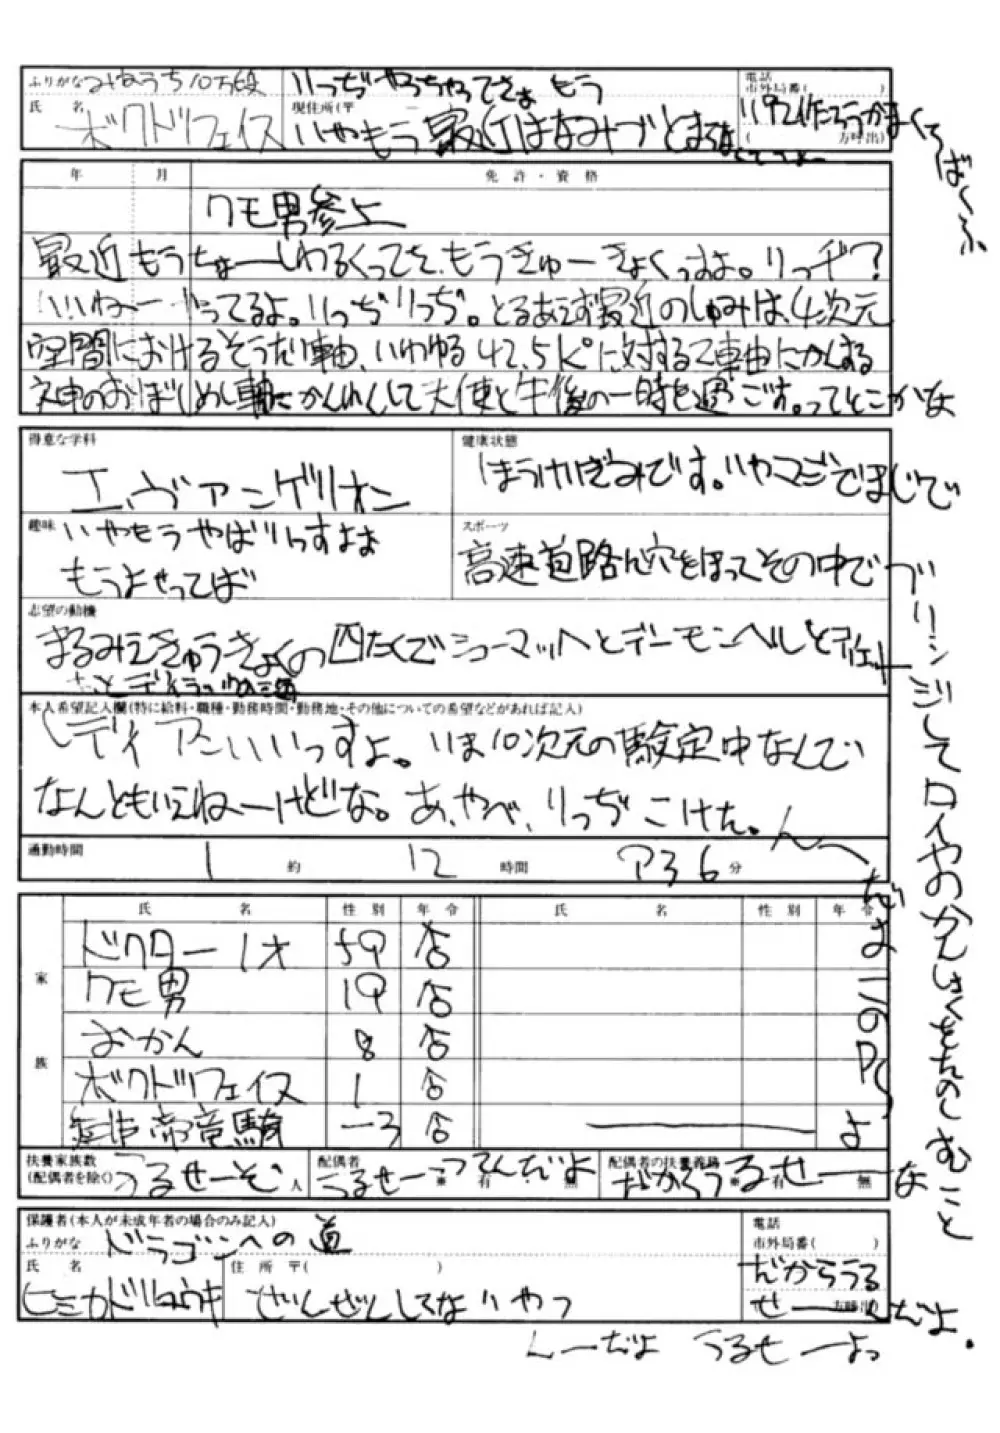 ふりがな
りっぢやっちゃてさぁ もう
電話
市外局番( )
氏 名 ボクドリフェイス
現住所(〒 ー
いやもう最近はなみづとまらな
( 方呼出)
ばくふ
年 月 免許・資格
クモ男参上
最近もうちょーしわるくってさ、もうきゅーきょくっすよ。りっヂ?
いいねー やってるよ。りっぢりっぢ。とるあえず最近のしゅみは、4次元
空間におけるそうたい軸、いわゆる42.5K°に対する2軸にかんする
神のおぼしめし軸にかんれんして天使と午後の一時を過ごす。ってとこかな
得意な学科
エヴァンゲリオン
健康状態
ほうけいぎみです。いやマジでまじで
趣味 いやもうやばいっすよ
もうよせってば
スポーツ
高速道路に穴をほってその中で
ブリッジしてロイやおかんしょくをたのしむこと
志望の動機
まるみえきゅうきょくの四たくでシューマッハとデーモンヘルと
本人希望記入欄(特に給料・職種・勤務時間・勤務地・その他についての希望などがあれば記入)
レディアンいいっすよ。いま10次元の験定中なんで
なんともいえねーけどな。あ、やべ、りっぢこけた。
通勤時間 1 約 12 時間 6 分
んーだよこのPCよ
家族
氏 名 性別 年令 氏 名 性別 年令
ドクター1才 59 古
クモ男 19 古
おかん 8 古
ボクドリフェイス 1 古
帝竜騎 -3 古
扶養家族数
(配偶者を除く) うるせーぞ 人
配偶者
うるせーってんだよ
※ 有 無
配偶者の扶養義務
だからうるせーな
※ 有 無
保護者(本人が未成年者の場合のみ記入)
ふりがな ドラゴンへの道
電話
市外局番( )
氏 名 ヒミカドリュウキ
住所 〒( )
ぜんぜんしてないやつ
だからうる
せーんだよ.
方呼出)
んーだよ うるせーよっ